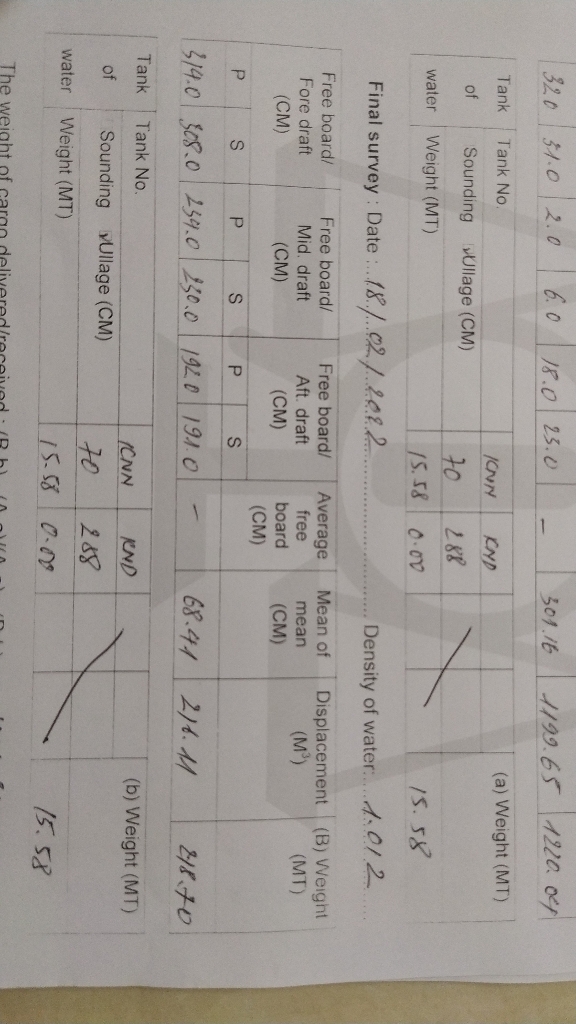 32.0 31.0 2.0 6.0 18.0 23.0 - 301.16 1199.65 1220.04
Tank of water
Tank No. KNN KND
Sounding Ullage (CM) 70 288
Weight (MT) 15.58 0.00
(a) Weight (MT)
15.58
Final survey : Date : 18/02/2022 Density of water: 1.012
Free board/ Fore draft (CM)
Free board/ Mid. draft (CM)
Free board/ Aft. draft (CM)
Average free board (CM)
Mean of mean (CM)
Displacement (M³)
(B) Weight (MT)
P S P S P S
314.0 308.0 239.0 230.0 192.0 191.0 - 68.41 216.11 218.70
Tank of water
Tank No. KNN KND
Sounding Ullage (CM) 70 288
Weight (MT) 15.58 0.00
(b) Weight (MT)
15.58
The weight of cargo delivered/received :